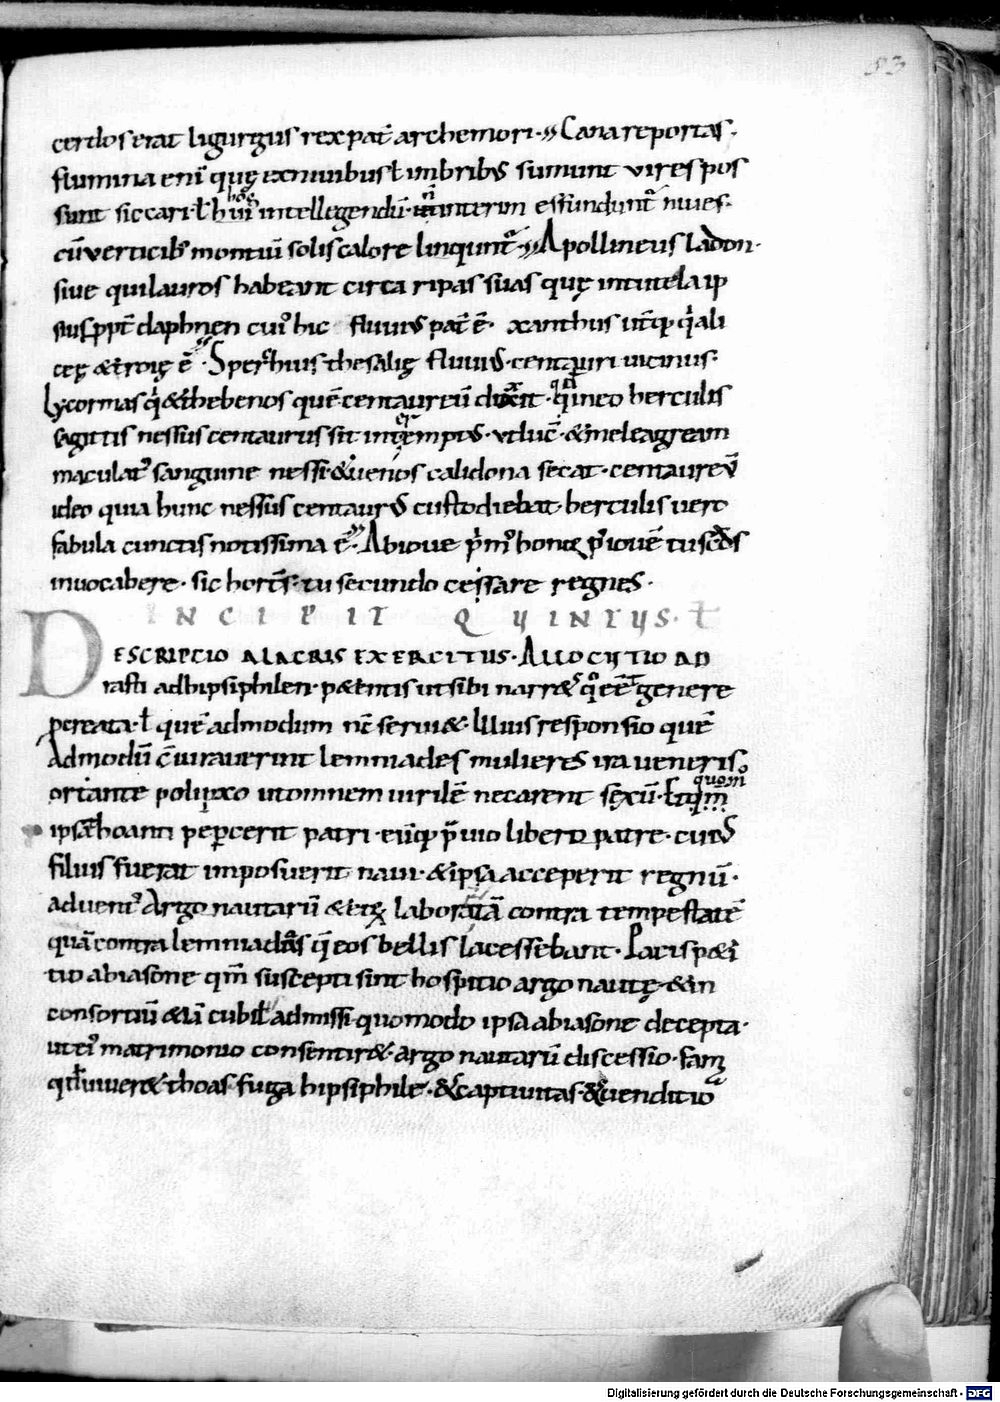 83
cerdos erat ligurgus rex pat̄ archemori · Cana reportas·
flumina eni quę ex nivibus ł imbribꝰ sumunt vires pos
sunt siccari · ł intellegendū · interim effundunt niues
cū verticibꝰ montiū solis calore linqunt · Apollineus ladon·
sive qui lauros habeant circa ripas suas quę in tutela ip
sius ppt̄ daphnen cui hic fluuius pat̄ ē· xanthus utq̨ q̇ ali
cęę & troię ē · Sperchius thesalię fluuiꝰ· centauri uicinus·
lycormas q̇ & hebenos quē centaureū dixit · q̇ in eo herculis
sagittis nessus centaurus sit · ut luc̄ · & meleagream
maculatꝰ sanguine nessi · & uenos calidona secat · centaureū
ideo quia hunc nessus centaurꝰ custodiebat · herculis vero
fabula cunctis notissima ē· Ab ioue p̄mꝰ honę
invocabere · sic hortēs· tu secundo cessare regnes·
INCIPIT QUINTUS·
DESCRIPTIO ALACRIS EXERCITUS· ALLOCUTIO AD
rasti ad hipsiphilen · p&entis ut sibi narr& q̄ eēt genere
ꝑcreata · ł quē admodum nc̄ serui& · Illius responsio quē
Admodū c̄iuraverint lemniades mulieres ira veneris
ortante polixo ut omnem virilē necarent sexū ·
quom̄
ipsa thoanti pepercerit patri · eūq̨ p̄vio libero patre ·
filius fuerat imposuerit navi · & ipsa acceperit regnū·
adventꝰ Argo nautarū & laboratā contra tempestatē
quā contra lemniadas q̄ eos bellis lacessebant · Pacis p&i
tio ab iasone qm̄ suscepti sint hospitio argo nautę & in
consortiū & iā cubil admissi quomodo ipsa ab iasone decepta·
ut eiꝰ matrimonio consentir& · argo nautarū discessio · fama
qd viver& thoas · fuga hipsiphile · & captivitas · & venditio
Digitalisierung gefördert durch die Deutsche Forschungsgemeinschaft - DFG